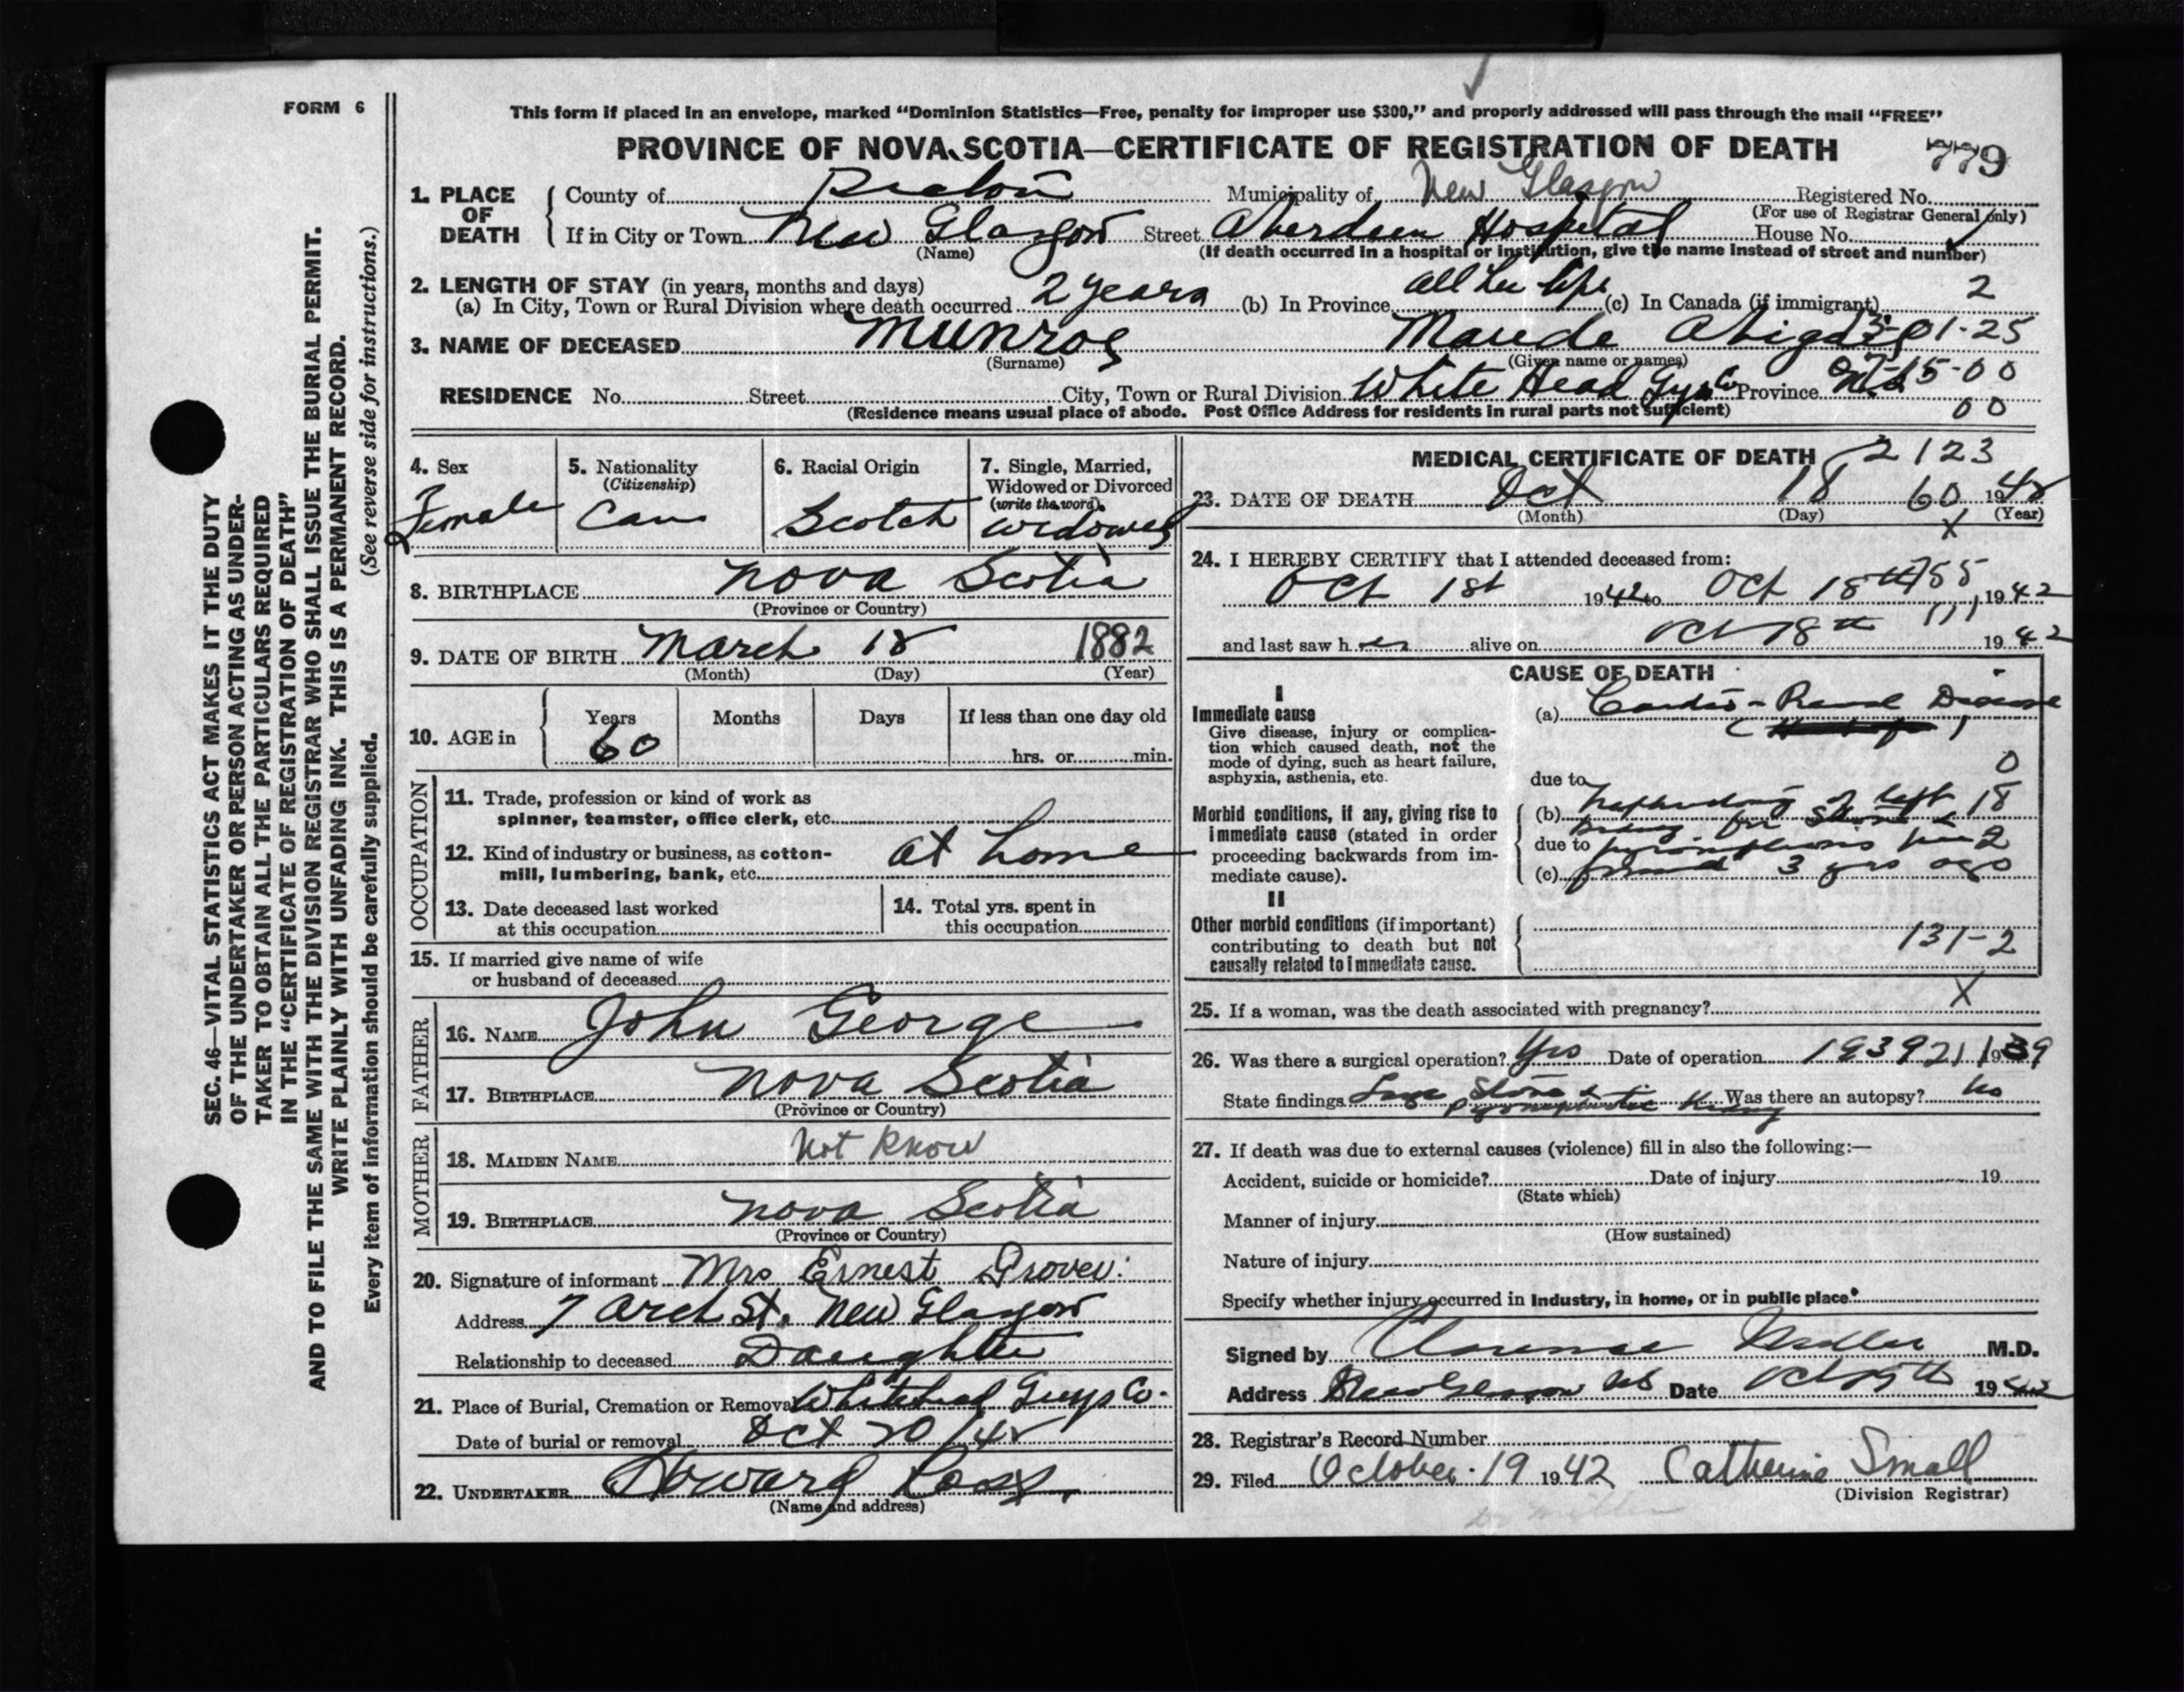 FORM 6
This form if placed in an envelope, marked "Dominion Statistics—Free, penalty for improper use $300," and properly addressed will pass through the mail "FREE"
PROVINCE OF NOVA SCOTIA—CERTIFICATE OF REGISTRATION OF DEATH 779
1. PLACE OF DEATH
County of Pictou Municipality of New Glasgow Registered No.
(For use of Registrar General only)
If in City or Town New Glasgow Street Aberdeen Hospital House No.
(Name) (If death occurred in a hospital or institution, give the name instead of street and number)
2. LENGTH OF STAY (in years, months and days)
(a) In City, Town or Rural Division where death occurred 2 years (b) In Province all her life (c) In Canada (if immigrant) 2
3. NAME OF DECEASED Munroe Maude Abigail 01-25
(Surname) (Given name or names)
RESIDENCE No. Street City, Town or Rural Division White Head Guys Co Province N.S. 15-00
(Residence means usual place of abode. Post Office Address for residents in rural parts not sufficient) 00
4. Sex Female
5. Nationality (Citizenship) Can
6. Racial Origin Scotch
7. Single, Married, Widowed or Divorced (write the word) widowed
8. BIRTHPLACE Nova Scotia
(Province or Country)
9. DATE OF BIRTH March 18 1882
(Month) (Day) (Year)
10. AGE in Years 60 Months Days If less than one day old
hrs. or min.
OCCUPATION
11. Trade, profession or kind of work as
spinner, teamster, office clerk, etc.
12. Kind of industry or business, as cotton-
mill, lumbering, bank, etc. at home
13. Date deceased last worked
at this occupation
14. Total yrs. spent in
this occupation
15. If married give name of wife
or husband of deceased
FATHER
16. NAME John George
17. BIRTHPLACE Nova Scotia
(Province or Country)
MOTHER
18. MAIDEN NAME Not Know
19. BIRTHPLACE Nova Scotia
(Province or Country)
20. Signature of informant Mrs Ernest Grover
Address 7 Arch St. New Glasgow
Relationship to deceased Daughter
21. Place of Burial, Cremation or Removal Whitehead Guys Co.
Date of burial or removal Oct 20/42
22. UNDERTAKER Howard Ross
(Name and address)
MEDICAL CERTIFICATE OF DEATH 2123
23. DATE OF DEATH Oct 18 60 1942
(Month) (Day) (Year)
X
24. I HEREBY CERTIFY that I attended deceased from:
Oct 1st 1942 to Oct 18th 1942
and last saw her alive on Oct 18th 1942
CAUSE OF DEATH
I
Immediate cause
Give disease, injury or complica-
tion which caused death, not the
mode of dying, such as heart failure,
asphyxia, asthenia, etc.
(a) Cardio-Renal Disease
due to 0
Morbid conditions, if any, giving rise to
immediate cause (stated in order
proceeding backwards from im-
mediate cause).
(b) of left 18
due to 2
(c) 3 yrs ago
II
Other morbid conditions (if important)
contributing to death but not
causally related to immediate cause.
131-2
25. If a woman, was the death associated with pregnancy? X
26. Was there a surgical operation? Yes Date of operation 1939
State findings Large Stone & Kidney Was there an autopsy? No
27. If death was due to external causes (violence) fill in also the following:—
Accident, suicide or homicide? Date of injury 19
(State which)
Manner of injury
(How sustained)
Nature of injury
Specify whether injury occurred in Industry, in home, or in public place
Signed by Clarence Miller M.D.
Address New Glasgow NS Date Oct 1942
28. Registrar's Record Number
29. Filed October 19 1942 Catherine Small
(Division Registrar)
Dr Miller
SEC. 46—VITAL STATISTICS ACT MAKES IT THE DUTY
OF THE UNDERTAKER OR PERSON ACTING AS UNDER-
TAKER TO OBTAIN ALL THE PARTICULARS REQUIRED
IN THE "CERTIFICATE OF REGISTRATION OF DEATH"
AND TO FILE THE SAME WITH THE DIVISION REGISTRAR WHO SHALL ISSUE THE BURIAL PERMIT.
WRITE PLAINLY WITH UNFADING INK. THIS IS A PERMANENT RECORD.
Every item of information should be carefully supplied. (See reverse side for instructions.)